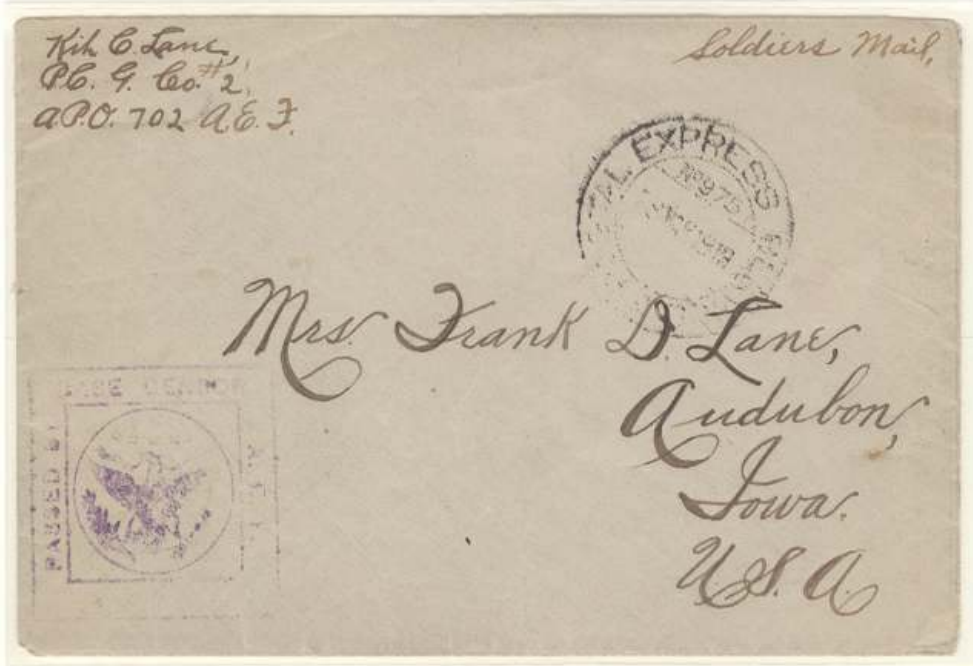 Kih C. Lane,
P.C. G. Co. #2,
A.P.O. 702 A.E.F.
Soldiers Mail,
POSTAL EXPRESS
No 975
Mrs. Frank D. Lane,
Audubon,
Iowa.
U.S.A.
BASE CENSOR
PASSED BY